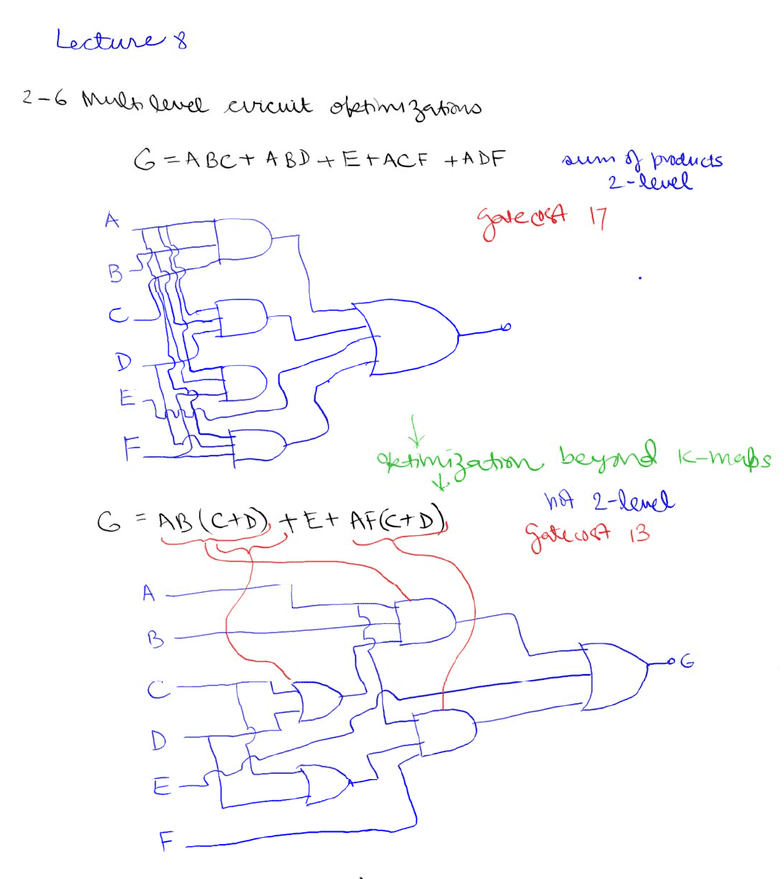 Lecture 8
2-6 Multilevel circuit optimizations
G = ABC + ABD + E + ACF + ADF
sum of products
2-level
gate cost 17
A
B
C
D
E
F
optimization beyond K-maps
not 2-level
G = AB(C+D) + E + AF(C+D)
gate cost 13
A
B
C
G
D
E
F